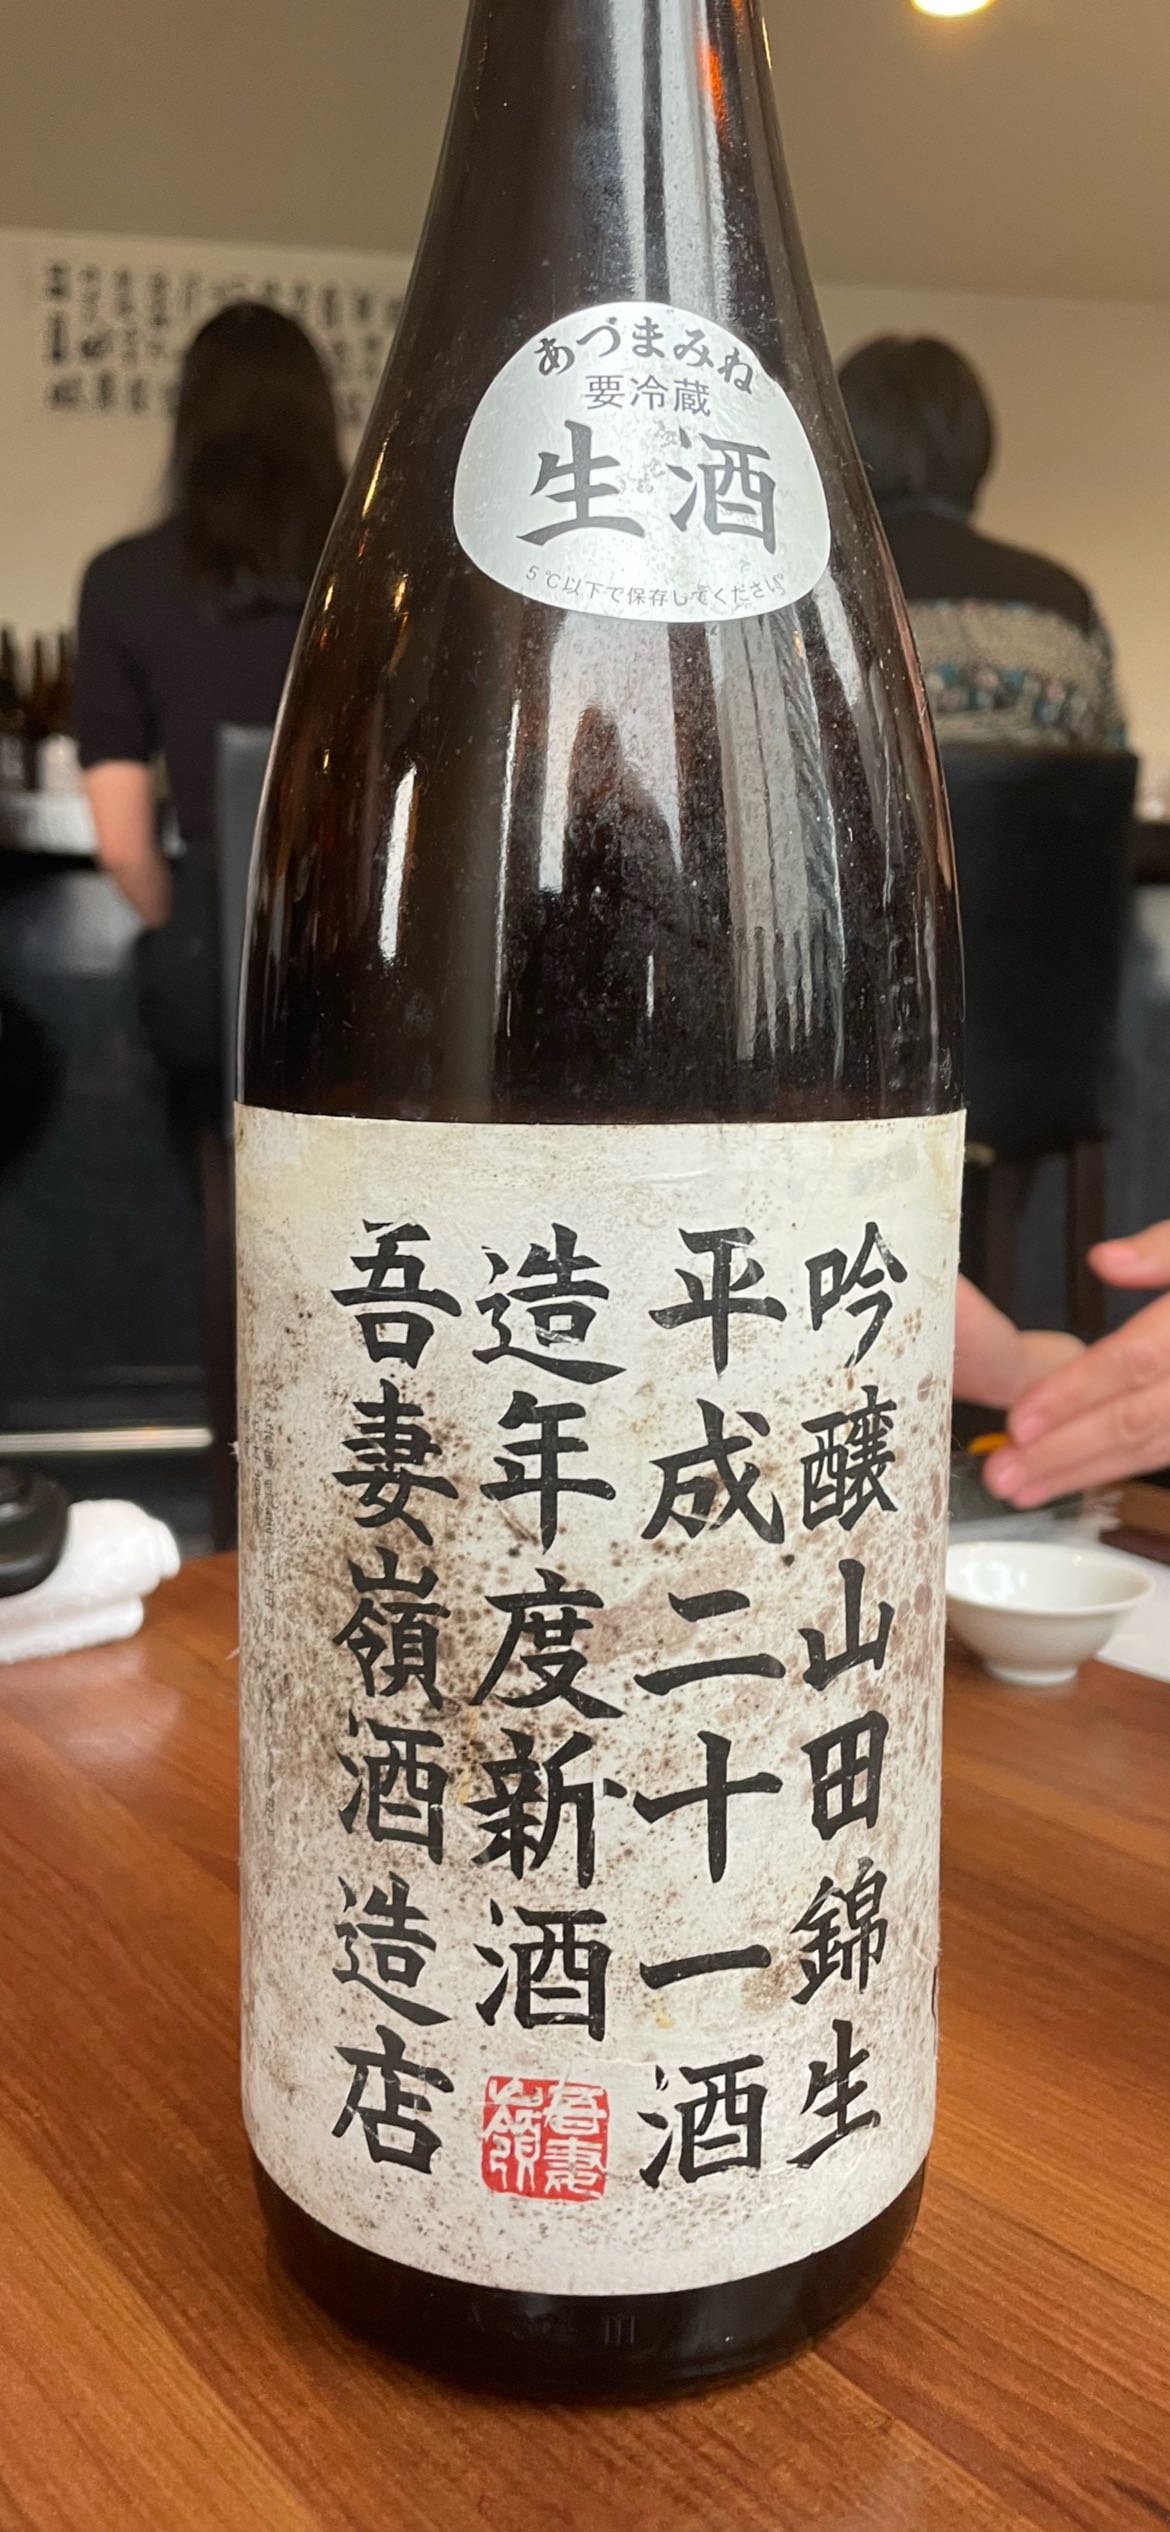 あづまみね
要冷蔵
生酒
5℃以下で保存してください
吟醸山田錦生
平成二十一酒
造年度新酒
吾妻嶺酒造店
吾妻嶺